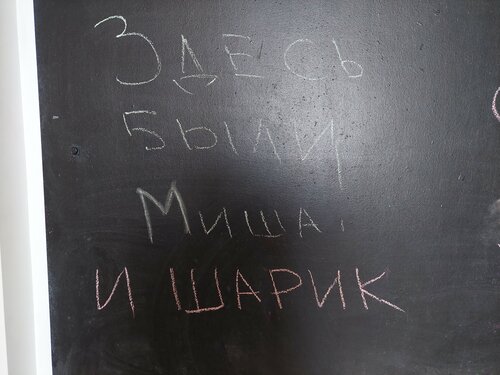 ЗДЕСЬ
БЫЛИ
МИША.
И ШАРИК